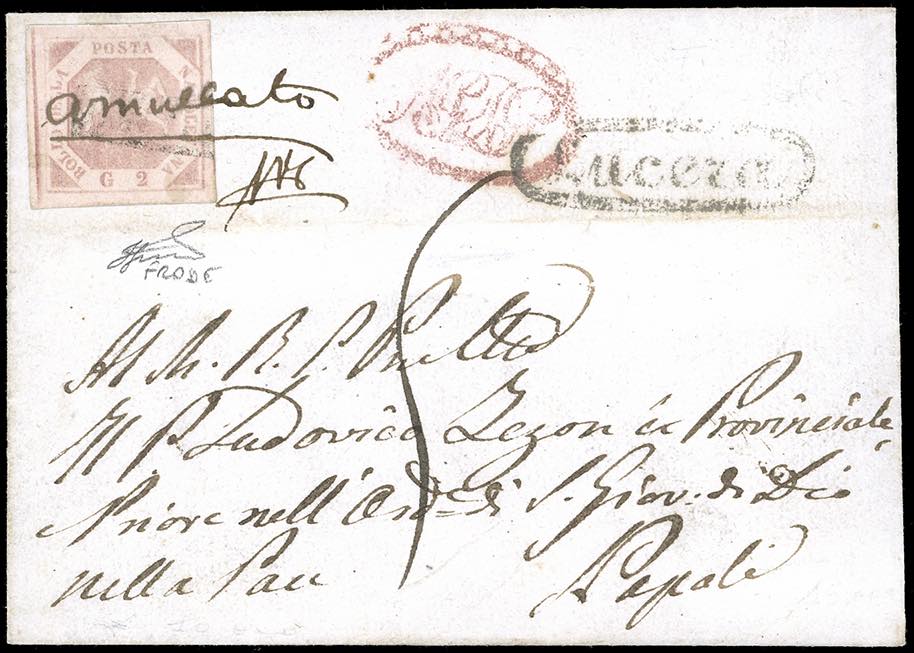 POSTA
NAPOLETANA
BOLLO DELLA
G 2
annullato
Lucera
FRODE
Al M. R. P.
Il P. Ludovico Lezon ex Provinciale
Priore nell' Ord.e di S. Giov. di Dio
nella Pace Napoli